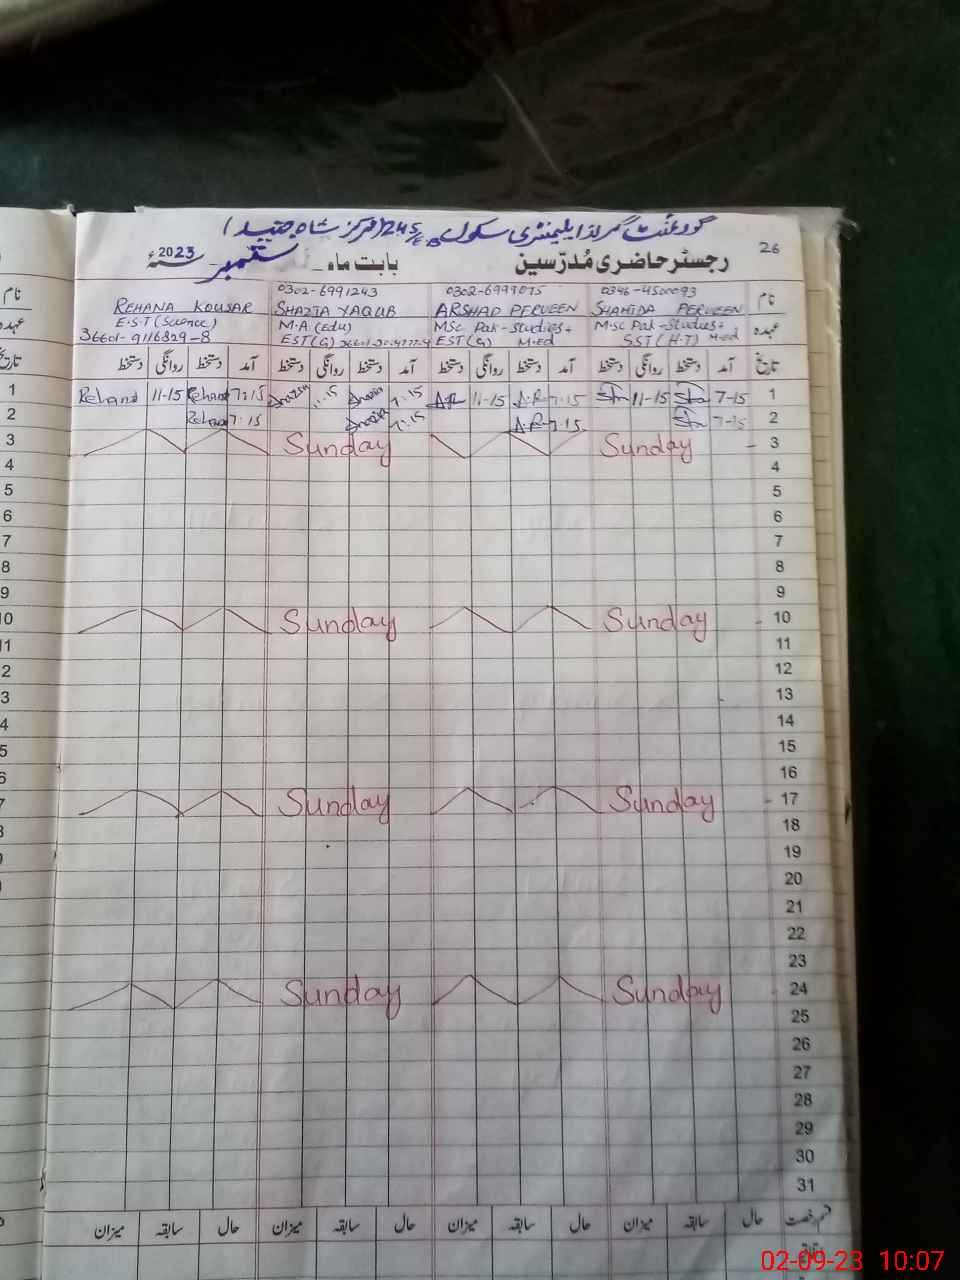 گورنمنٹ گرلز ایلیمنٹری سکول 245/E.B (مرکز شاہ جنید)
26
رجسٹر حاضری مُدرّسین بابت ماہ ستمبر 2023ء
نام
0346-4500093
SHAHIDA PERVEEN
0302-6999075
ARSHAD PERVEEN
0302-6991243
SHAZIA YAQUB
REHANA KOUSAR
عہدہ
M.Sc Pak-Studies+
SST (H.T) M-ed
MSc Pak-Studies+
EST (G) M-Ed
M.A (Edu)
EST (G)
E.S.T (Science)
36601-9116829-8
تاریخ آمد دستخط روانگی دستخط آمد دستخط روانگی دستخط آمد دستخط روانگی دستخط آمد دستخط روانگی دستخط
1 7-15 11-15 7-15 A.R 11-15 A.R 7-15 Shazia Rehana 7:15 Rehana 11-15
2 7-15 7-15 A.R 7:15 Shazia 7:15 Rehana
3 Sunday Sunday
4
5
6
7
8
9
10 Sunday Sunday
11
12
13
14
15
16
17 Sunday Sunday
18
19
20
21
22
23
24 Sunday Sunday
25
26
27
28
29
30
31
قسم رخصت حال سابقہ میزان حال سابقہ میزان حال سابقہ میزان حال سابقہ میزان
02-09-23 10:07